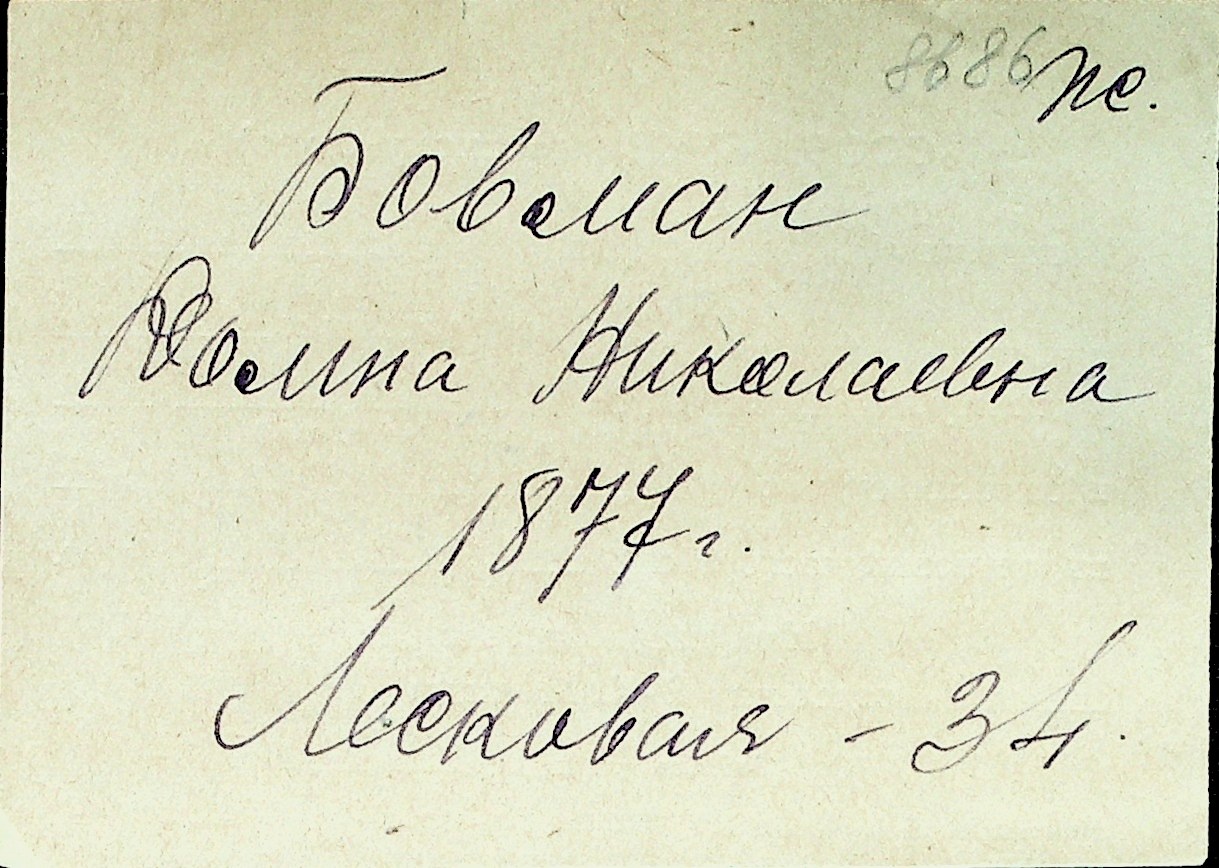 8686 пс.
Бовман
Домна Николаевна
1877 г.
Лесковая - 34.